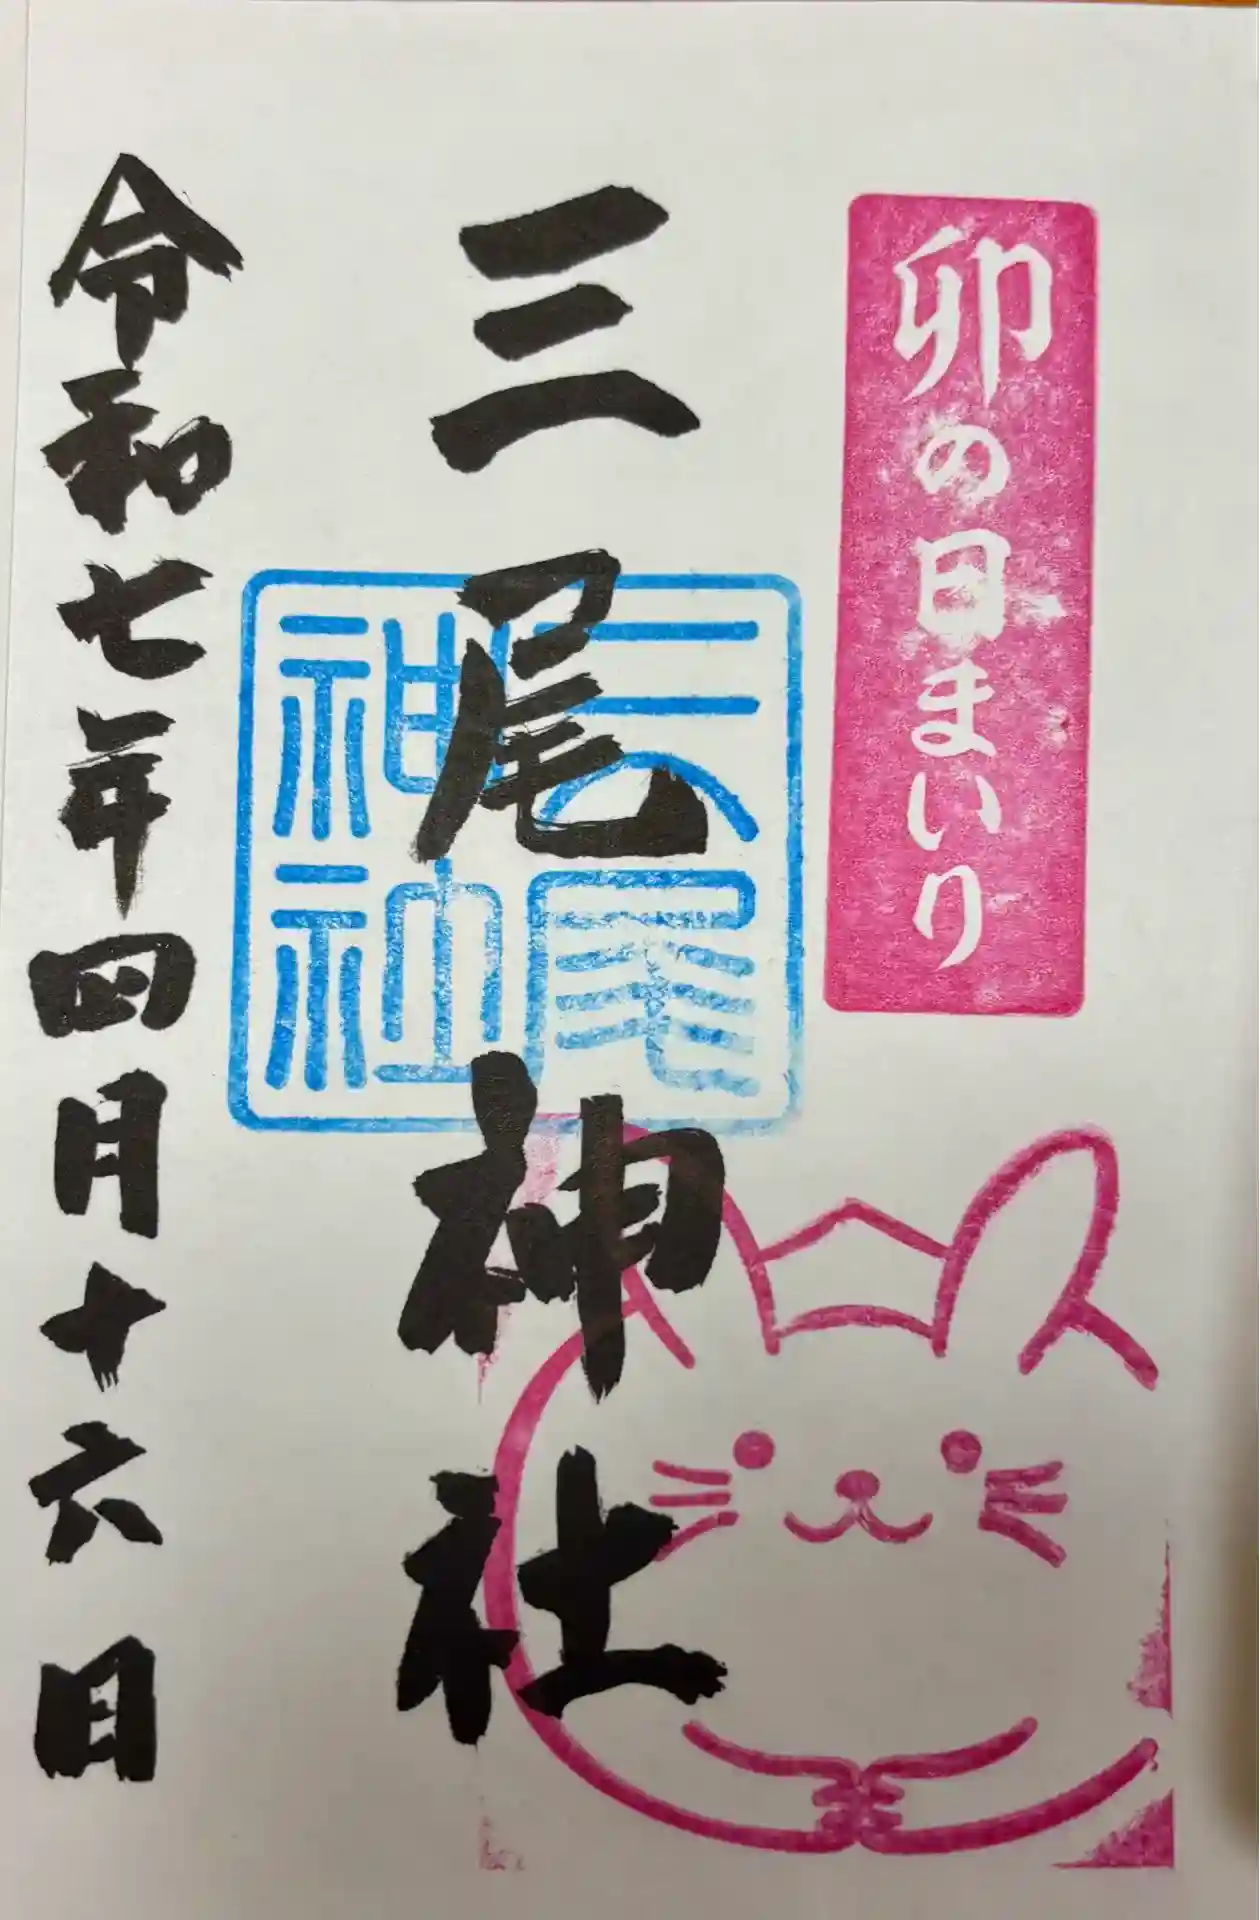 卯の日まいり
三尾神社
三尾
神社
令和七年四月十六日